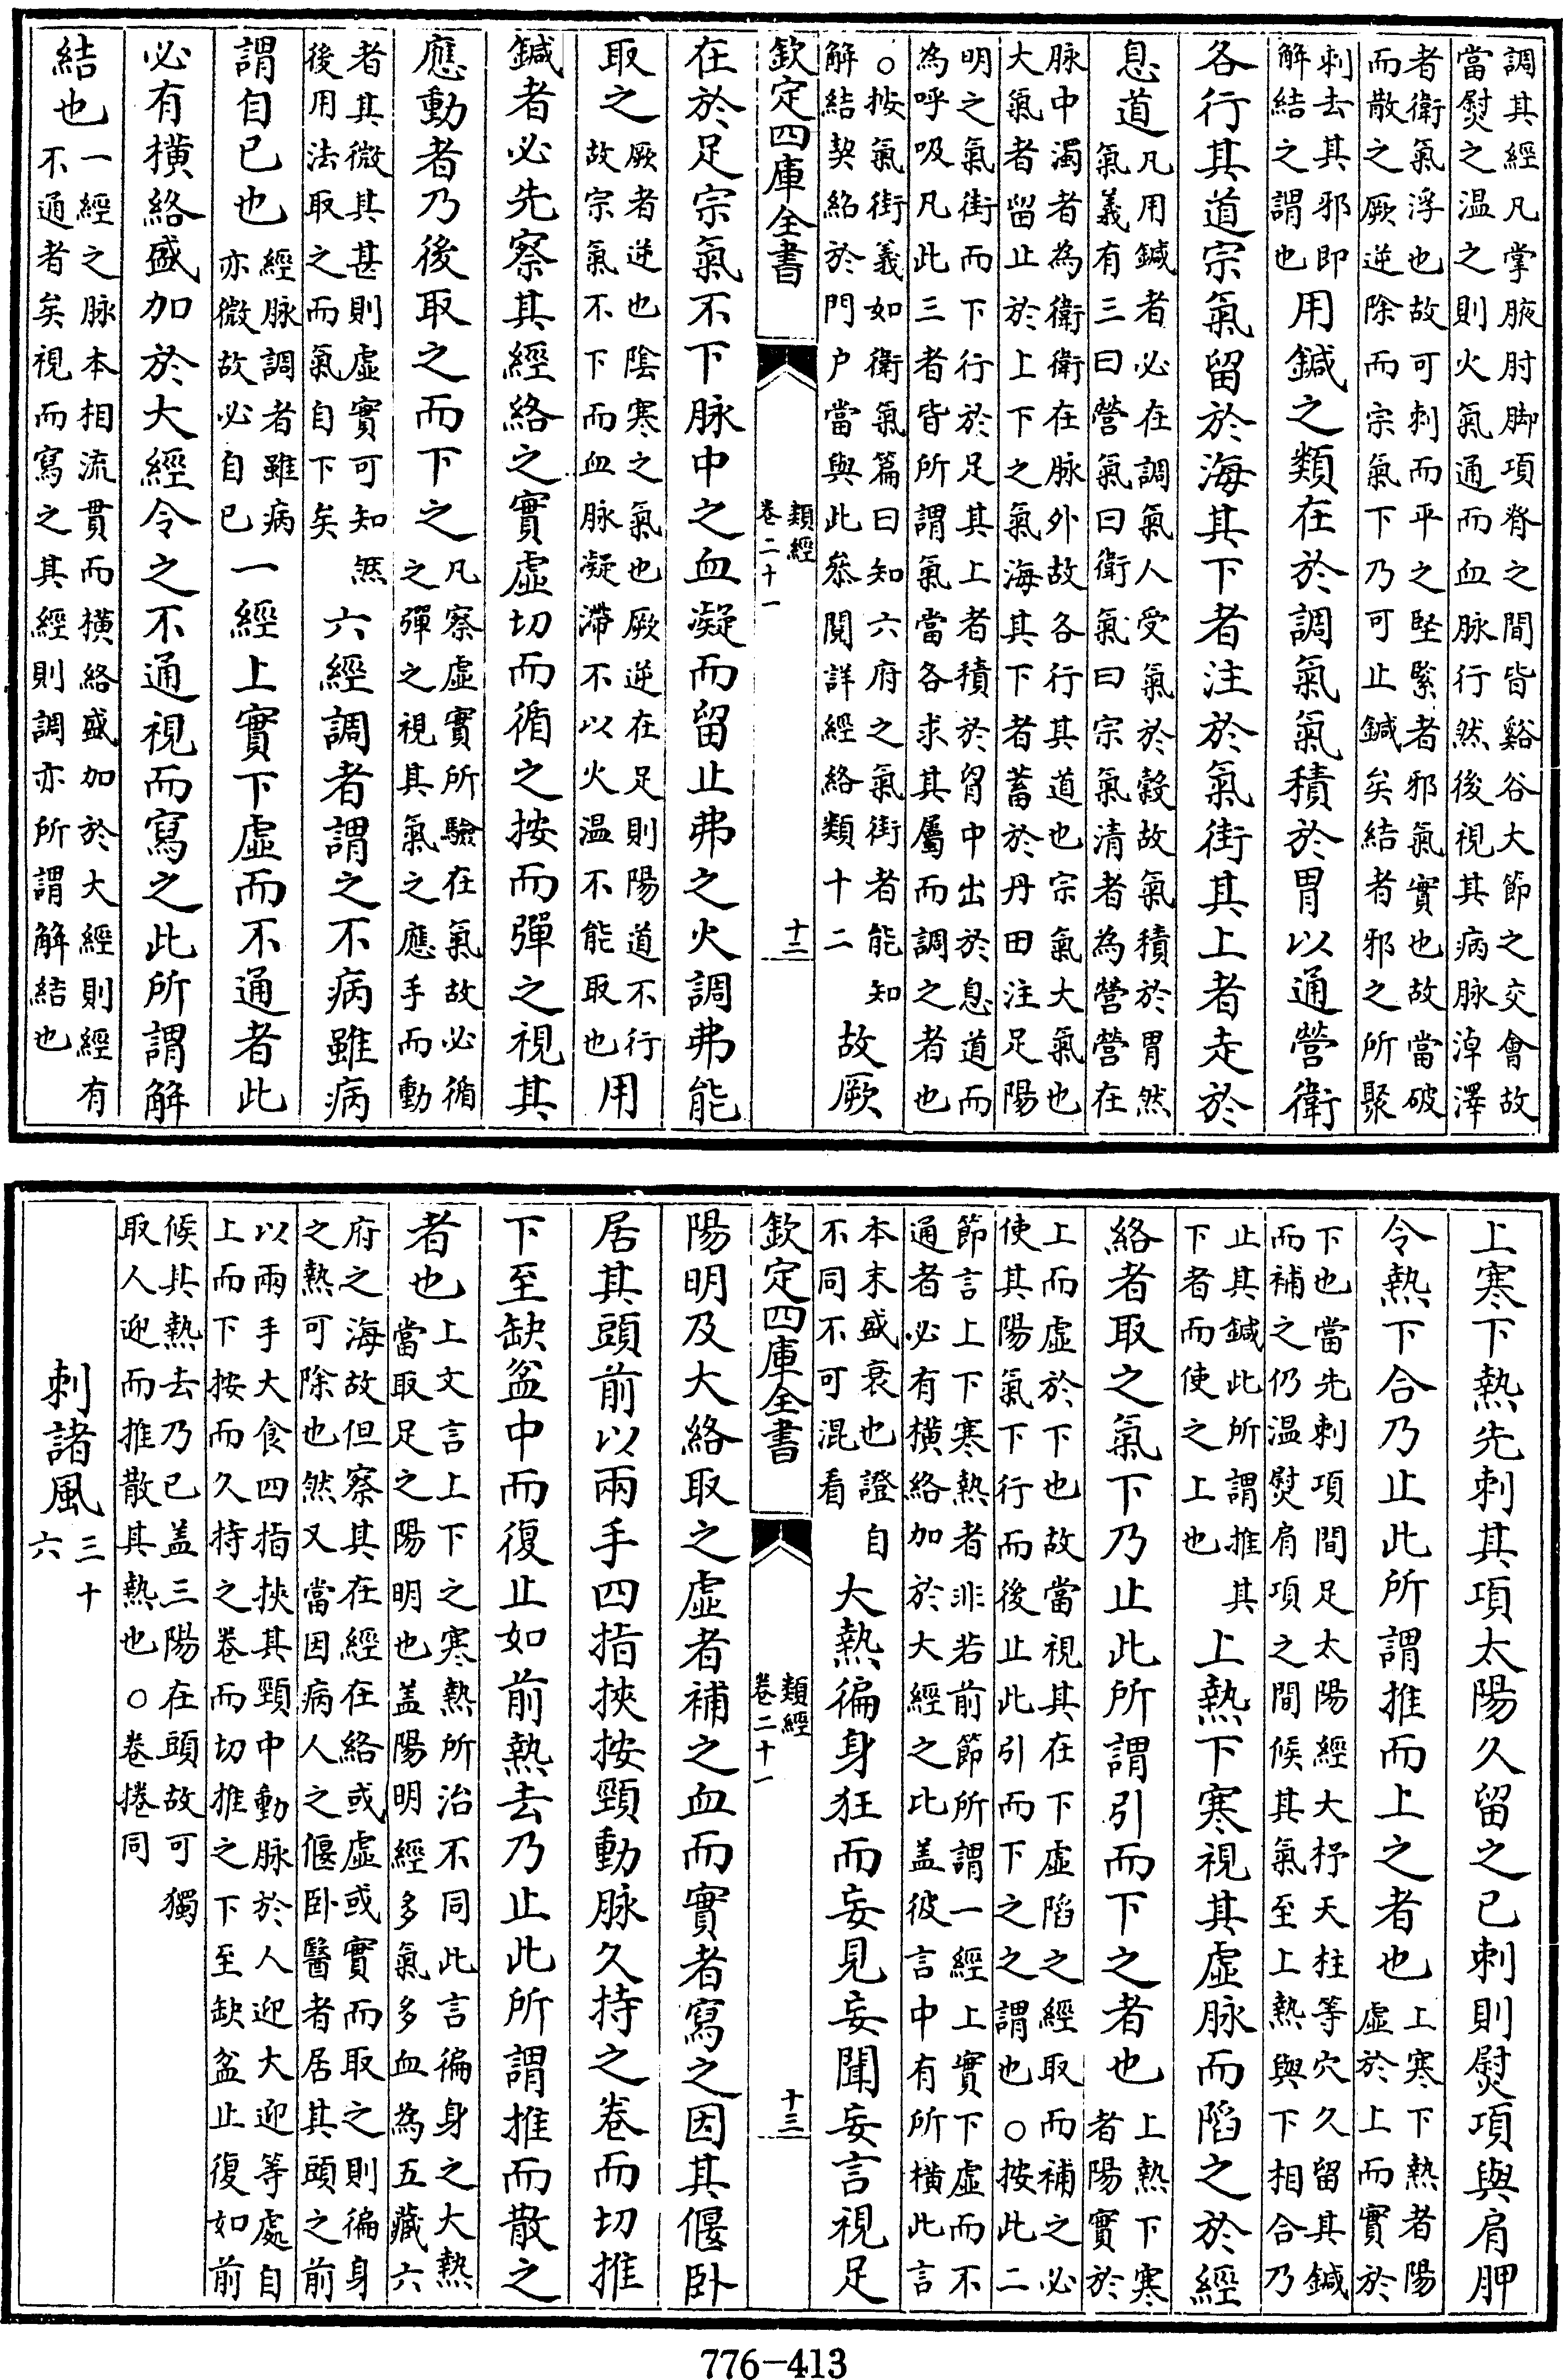 調其經凡掌腋肘脚項脊之間皆谿谷大節之交會故
當熨之温之則火氣通而血脉行然後視其病脉淖澤
者衛氣浮也故可刺而平之堅緊者邪氣實也故當破
而散之厥逆除而宗氣下乃可止鍼矣結者邪之所聚
刺去其邪即解結之謂也用鍼之類在於調氣氣積於胃以通營衛
各行其道宗氣留於海其下者注於氣街其上者走於
息道凡用鍼者必在調氣人受氣於穀故氣積於胃然氣義有三曰營氣曰衛氣曰宗氣清者為營營在
脉中濁者為衛衛在脉外故各行其道也宗氣大氣也
大氣者留止於上下之氣海其下者蓄於丹田注足陽
明之氣街而下行於足其上者積於胷中出於息道而
為呼吸凡此三者皆所謂氣當各求其屬而調之者也
○按氣街義如衛氣篇曰知六府之氣街者能知解結契紹於門户當與此叅閲詳經絡類十二故厥
欽定四庫全書
類經
卷二十一
十二
在於足宗氣不下脉中之血凝而留止弗之火調弗能
取之厥者逆也陰寒之氣也厥逆在足則陽道不行故宗氣不下而血脉凝滯不以火温不能取也用
鍼者必先察其經絡之實虛切而循之按而彈之視其
應動者乃後取之而下之凡察虛實所驗在氣故必循之彈之視其氣之應手而動
者其微其甚則虛實可知然後用法取之而氣自下矣六經調者謂之不病雖病
謂自已也經脉調者雖病亦微故必自已一經上實下虛而不通者此
必有橫絡盛加於大經令之不通視而寫之此所謂解
結也一經之脉本相流貫而橫絡盛加於大經則經有不通者矣視而寫之其經則調亦所謂解結也
上寒下熱先刺其項太陽久留之已刺則熨項與肩胛
令熱下合乃止此所謂推而上之者也上寒下熱者陽虛於上而實於
下也當先刺項間足太陽經大杼天柱等穴久留其鍼
而補之仍温熨肩項之間候其氣至上熱與下相合乃
止其鍼此所謂推其下者而使之上也上熱下寒視其虛脉而陷之於經
絡者取之氣下乃止此所謂引而下之者也上熱下寒者陽實於
上而虛於下也故當視其在下虛陷之經取而補之必
使其陽氣下行而後止此引而下之之謂也○按此二
節言上下寒熱者非若前節所謂一經上實下虛而不
通者必有橫絡加於大經之比盖彼言中有所橫此言
本末盛衰也證自不同不可混看大熱徧身狂而妄見妄聞妄言視足
欽定四庫全書
類經
卷二十一
十三
陽明及大絡取之虛者補之血而實者寫之因其偃卧
居其頭前以兩手四指挾按頸動脉久持之卷而切推
下至缺盆中而復止如前熱去乃止此所謂推而散之
者也上文言上下之寒熱所治不同此言徧身之大熱當取足之陽明也盖陽明經多氣多血為五藏六
府之海故但察其在經在絡或虛或實而取之則徧身
之熱可除也然又當因病人之偃卧醫者居其頭之前
以兩手大食四指挾其頸中動脉於人迎大迎等處自
上而下按而久持之卷而切推之下至缺盆止復如前
候其熱去乃已盖三陽在頭故可獨
取人迎而推散其熱也○卷捲同
刺諸風三十六
776-413